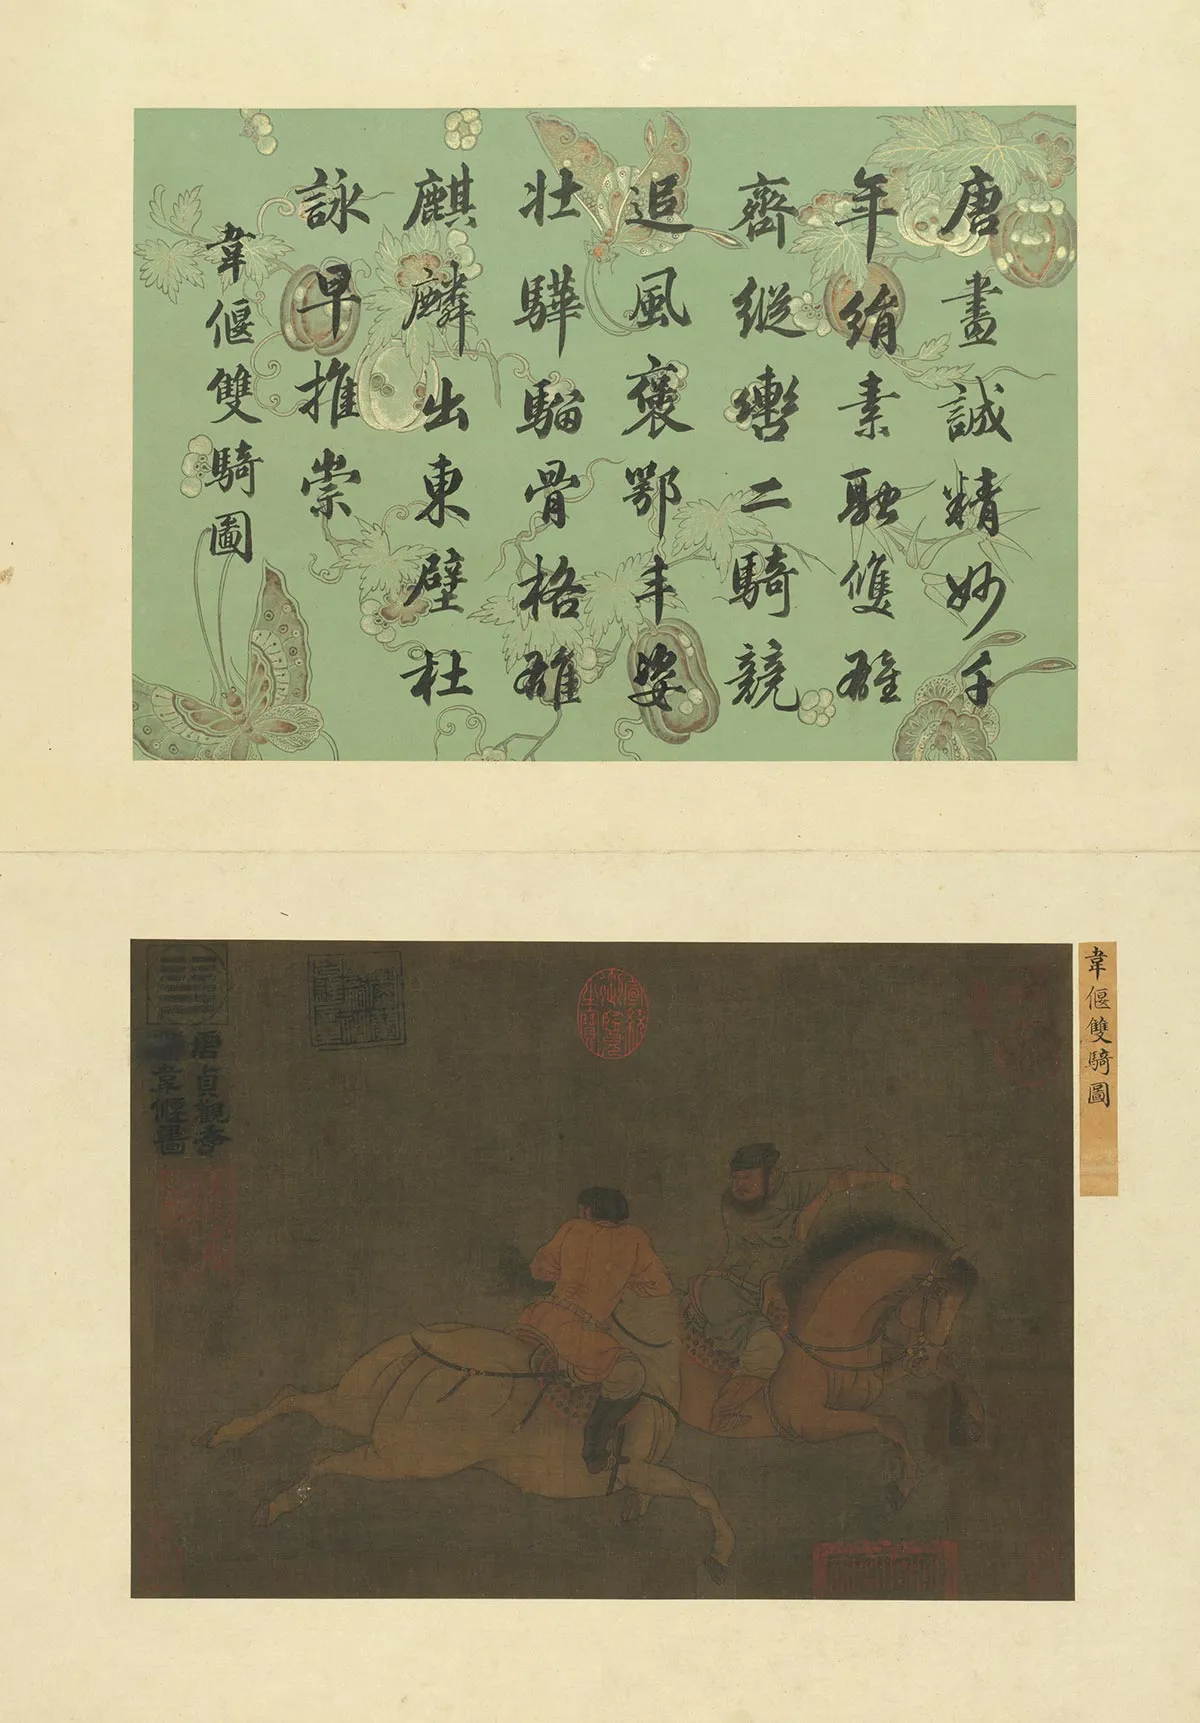 唐畫誠精妙千
年絹素融雙雄
齊縱轡二騎競
追風褒鄂丰姿
壯驊騮骨格雄
麒麟出東壁杜
詠早推崇
韋偃雙騎圖
韋偃雙騎圖
唐貞觀
韋偃畫